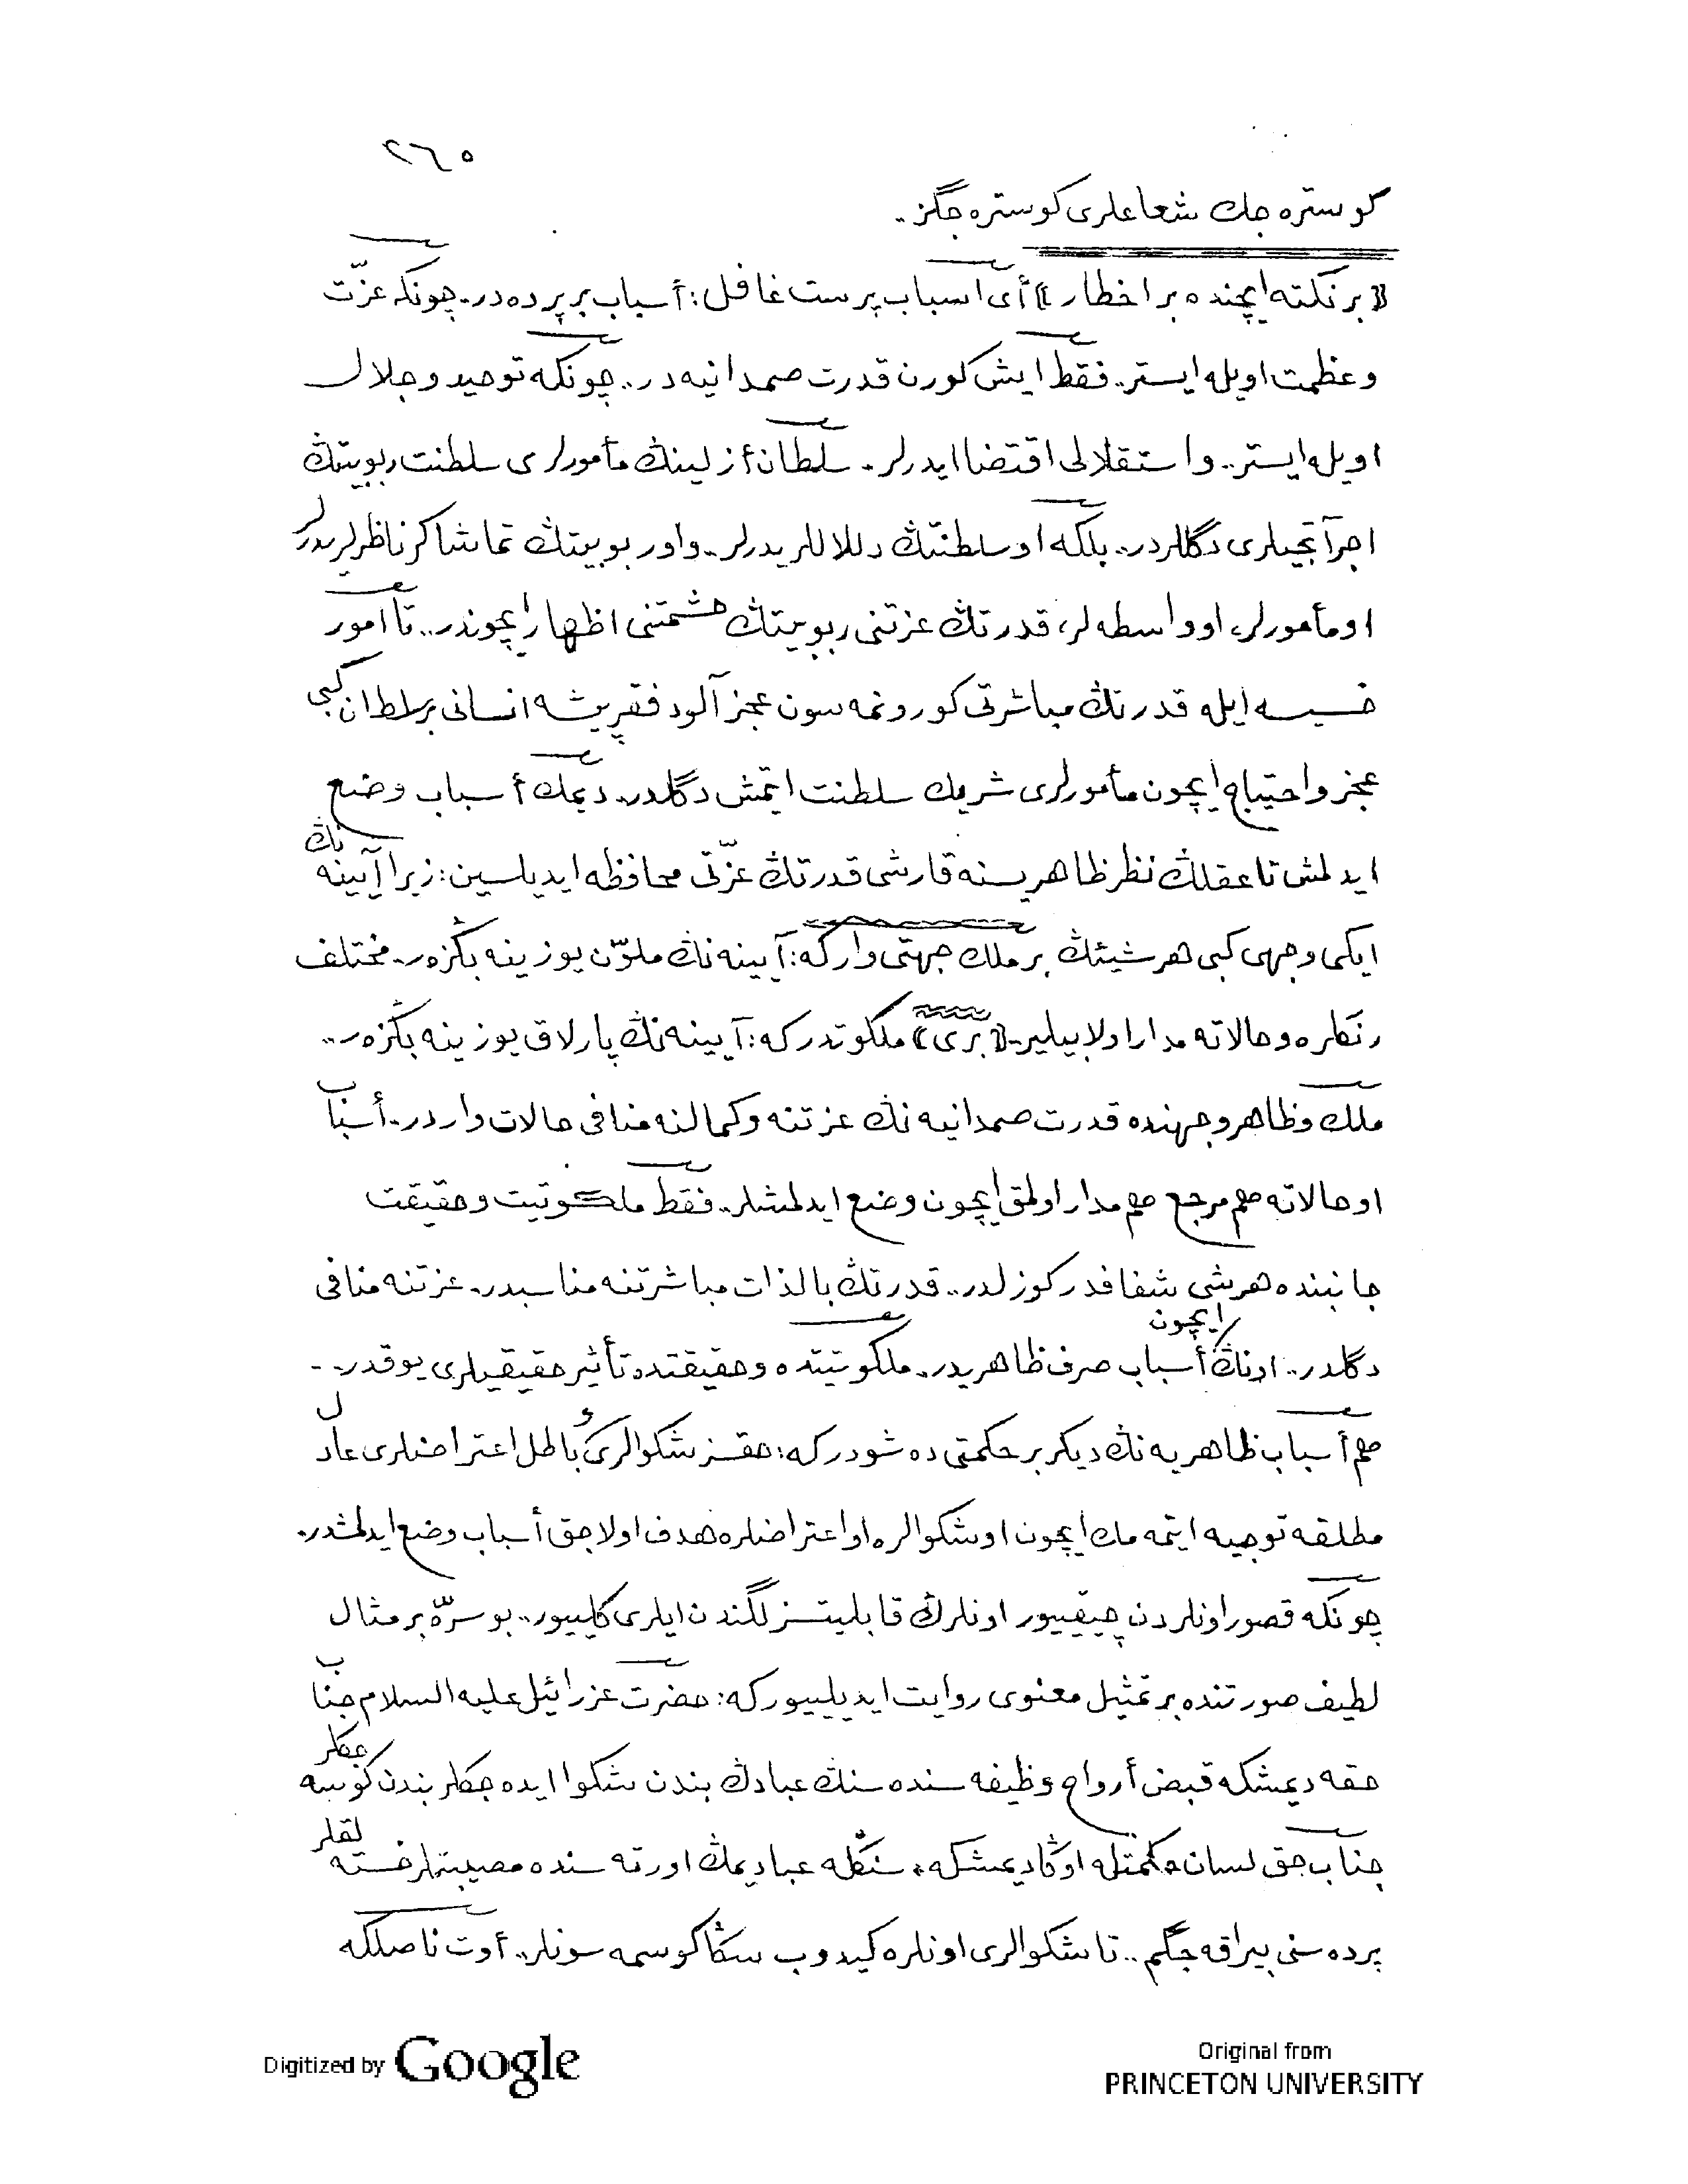 ٢٦٥
كوستره جك شعاعلری كوستره جگز.
﴿ بر نكته ایچنده بر اخطار ﴾ أی اسباب پرست غافل: أسباب بر پرده در.. چونكه عزّت
وعظمت اویله ایستر.. فقط ایش كورن قدرت صمدانیه در.. چونكه توحید وجلال
اویله ایستر.. واستقلالی اقتضا ایدرلر. سلطان أزلینڭ مأمورلری سلطنت ربوبیتڭ
اجرآتجیلری دگللردر.. بلكه او سلطنتڭ دلاللریدرلر.. واو ربوبیتڭ تماشاكر ناظرلریدرلر
او مأمورلر، او واسطه لر، قدرتڭ عزتنی ربوبیتڭ حشمتنی اظهار ایچوندر.. تا امور
خسیسه ایله قدرتڭ مباشرتی كورونمه سون عجز آلود فقرپیشه انسانی بر سلطان كبی
عجز واحتیاج ایچون مأمورلری شریك سلطنت ایتمش دگلدر. دیمك أسباب وضع
ایدلمش تا عقلڭ نظر ظاهریسنه قارشی قدرتڭ عزّتی محافظه ایدیلسین: زیرا آیینه نڭ
ایكی وجهی كبی هر شیئڭ بر ملك جهتی وار كه: آیینه نڭ ملوّن یوزینه بڭزه ر. مختلف
رنكلره وحالاته مدار اولابیلیر. ﴿ بری ﴾ ملكوتدر كه: آیینه نڭ پارلاق یوزینه بڭزه ر..
ملك وظاهر وجهنده قدرت صمدانیه نڭ عزتنه وكمالنه منافی حالات واردر. أسباب
او حالاته هم مرجع هم مدار اولمق ایچون وضع ایدلمشلر.. فقط ملكوتیت وحقیقت
جانبنده هر شی شفافدر كوزلدر.. قدرتڭ بالذات مباشرتنه مناسبدر. عزتنه منافی
دگلدر.. اونڭ ایچون أسباب صرف ظاهریدر. ملكوتیتده وحقیقتده تأثیر حقیقیلری یوقدر..
هم أسباب ظاهریه نڭ دیكر بر حكمتی ده شودر كه: حقسز شكوالری و باطل اعتراضلری عادل
مطلقه توجیه ایتمه مك ایچون او شكوالره او اعتراضلره هدف اولاجق أسباب وضع ایدلمشدر.
چونكه قصور اونلردن چیقییور اونلرڭ قابلیتسزلگندن ایلری كلییور.. بو سرّه بر مثال
لطیف صورتنده بر تمثیل معنوی روایت ایدیلییور كه: حضرت عزرائیل علیه السلام جناب
حقه دیمشكه قبض أرواح وظیفه سنده سنڭ عبادڭ بندن شكوا ایده جكلر بندن كوسه جكلر
جناب حق لسان حكمتله اوڭا دیمشكه. سنڭله عبادیمڭ اورته سنده مصیبتلر خسته لقلر
پرده سنی بیراقه جگم.. تا شكوالری اونلره كیدوب سڭا كوسمه سونلر.. أوت ناصلكه
Digitized by Google
Original from
PRINCETON UNIVERSITY